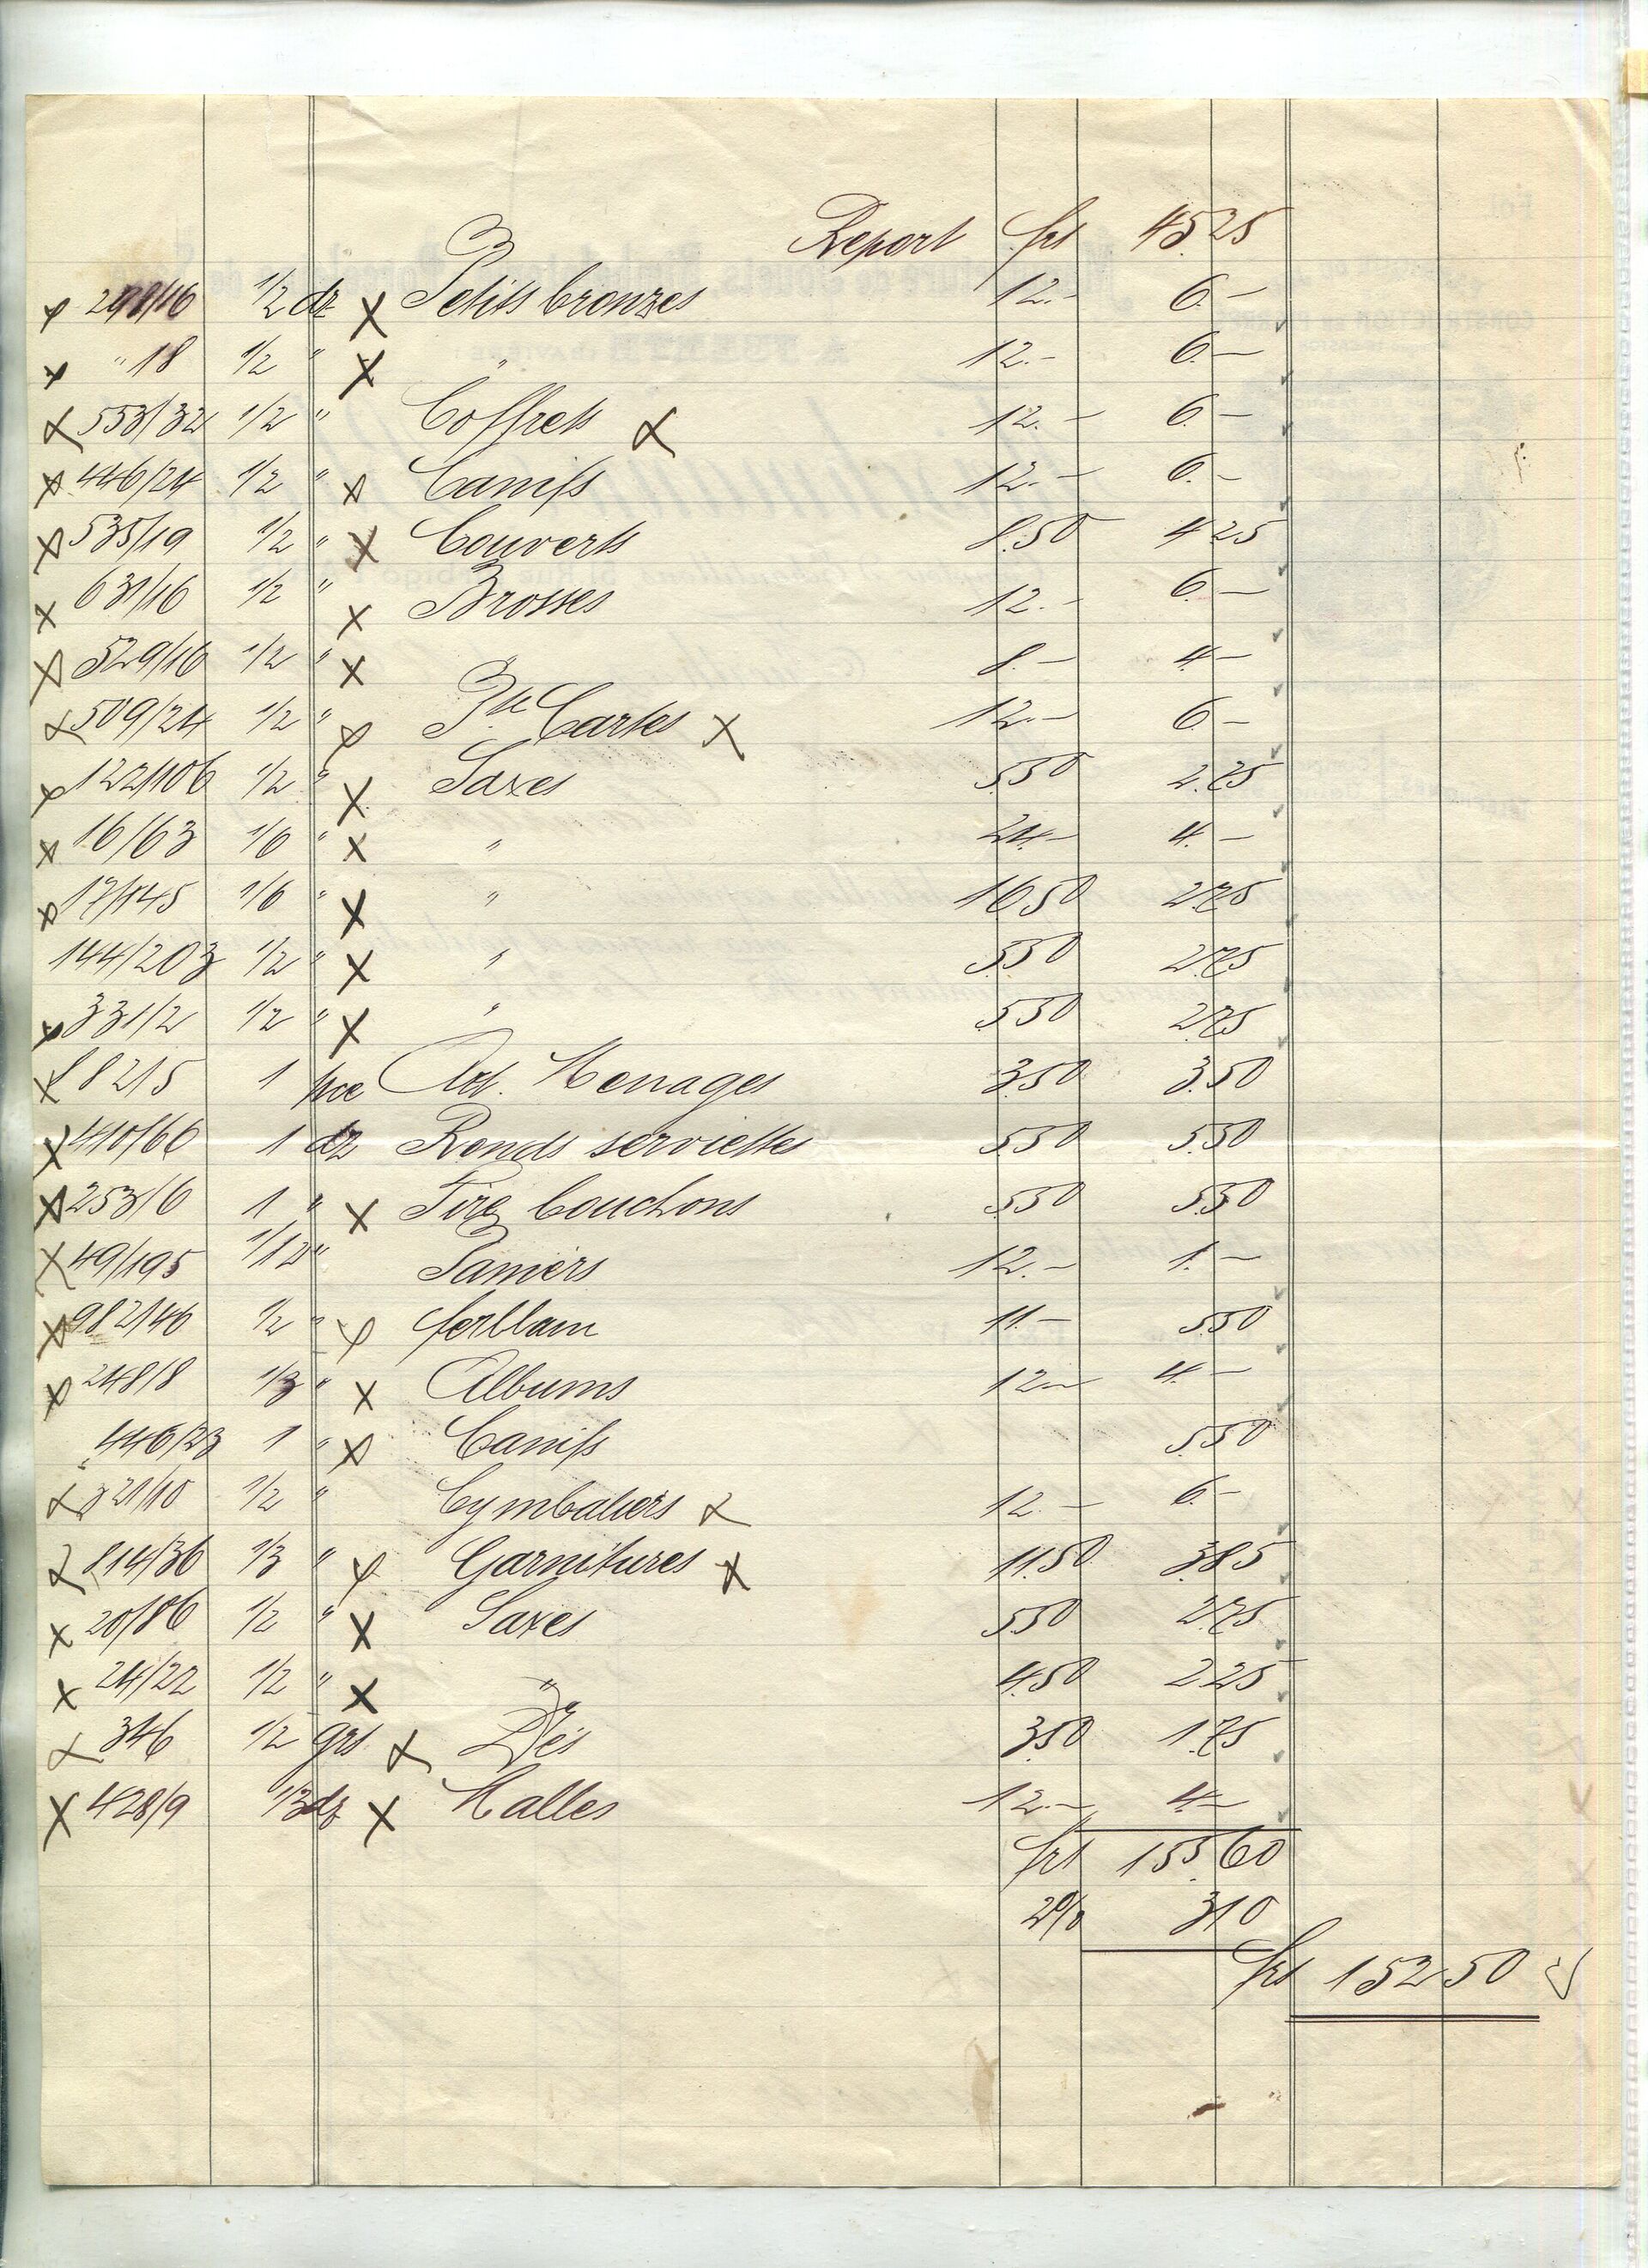 Report frs 45.25
298/16 1/2 dz Petits bronzes 12.- 6.-
" 18 1/2 " " 12.- 6.-
553/32 1/2 " Coffrets 12.- 6.-
446/24 1/2 " Canifs 12.- 6.-
535/19 1/2 " Couverts 8.50 4.25
631/16 1/2 " Brosses 12.- 6.-
529/16 1/2 " " 8.- 4.-
509/24 1/2 " Pte Cartes 12.- 6.-
122/106 1/2 " Saxes 5.50 2.75
16/63 1/6 " " 24.- 4.-
17/145 1/6 " " 16.50 2.75
144/203 1/2 " " 5.50 2.75
331/2 1/2 " " 5.50 2.75
821/5 1 pce Art. Menages 3.50 3.50
410/66 1 dz Ronds serviettes 5.50 5.50
253/6 1 " Tire bouchons 5.50 5.50
49/195 1/12 " Paniers 12.- 1.-
982/46 1/2 " ferblanc 11.- 5.50
248/8 1/3 " Albums 12.- 4.-
446/23 1 " Canifs 5.50
321/10 1/2 " Cymbaliers 12.- 6.-
814/36 1/3 " Garnitures 11.50 3.85
20/86 1/2 " Saxes 5.50 2.75
24/22 1/2 " " 4.50 2.25
346 1/2 grs Dés 3.50 1.75
428/9 1/3 dz Malles 12.- 4.-
frs 155.60
2% 3.10
frs 152.50